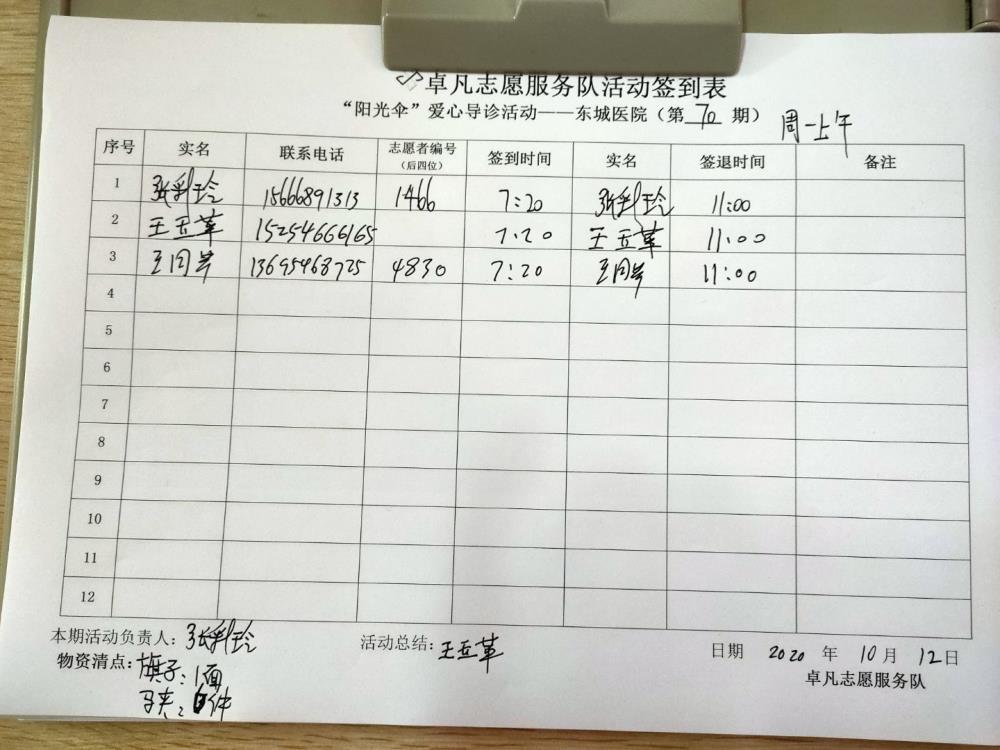 卓凡志愿服务队活动签到表
“阳光伞”爱心导诊活动——东城医院（第 70 期） 周一上午
序号 实名 联系电话 志愿者编号（后四位） 签到时间 实名 签退时间 备注
1 张彩玲 15666891313 1466 7:20 张彩玲 11:00
2 王玉革 15254666165 7:20 王玉革 11:00
3 王同芳 13695468725 4830 7:20 王同芳 11:00
4
5
6
7
8
9
10
11
12
本期活动负责人：张彩玲 活动总结：王玉革 日期 2020 年 10 月 12 日
物资清点：旗子：1面 卓凡志愿服务队
马夹： 件